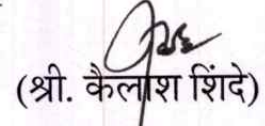 (श्री. कैलाश शिंदे)